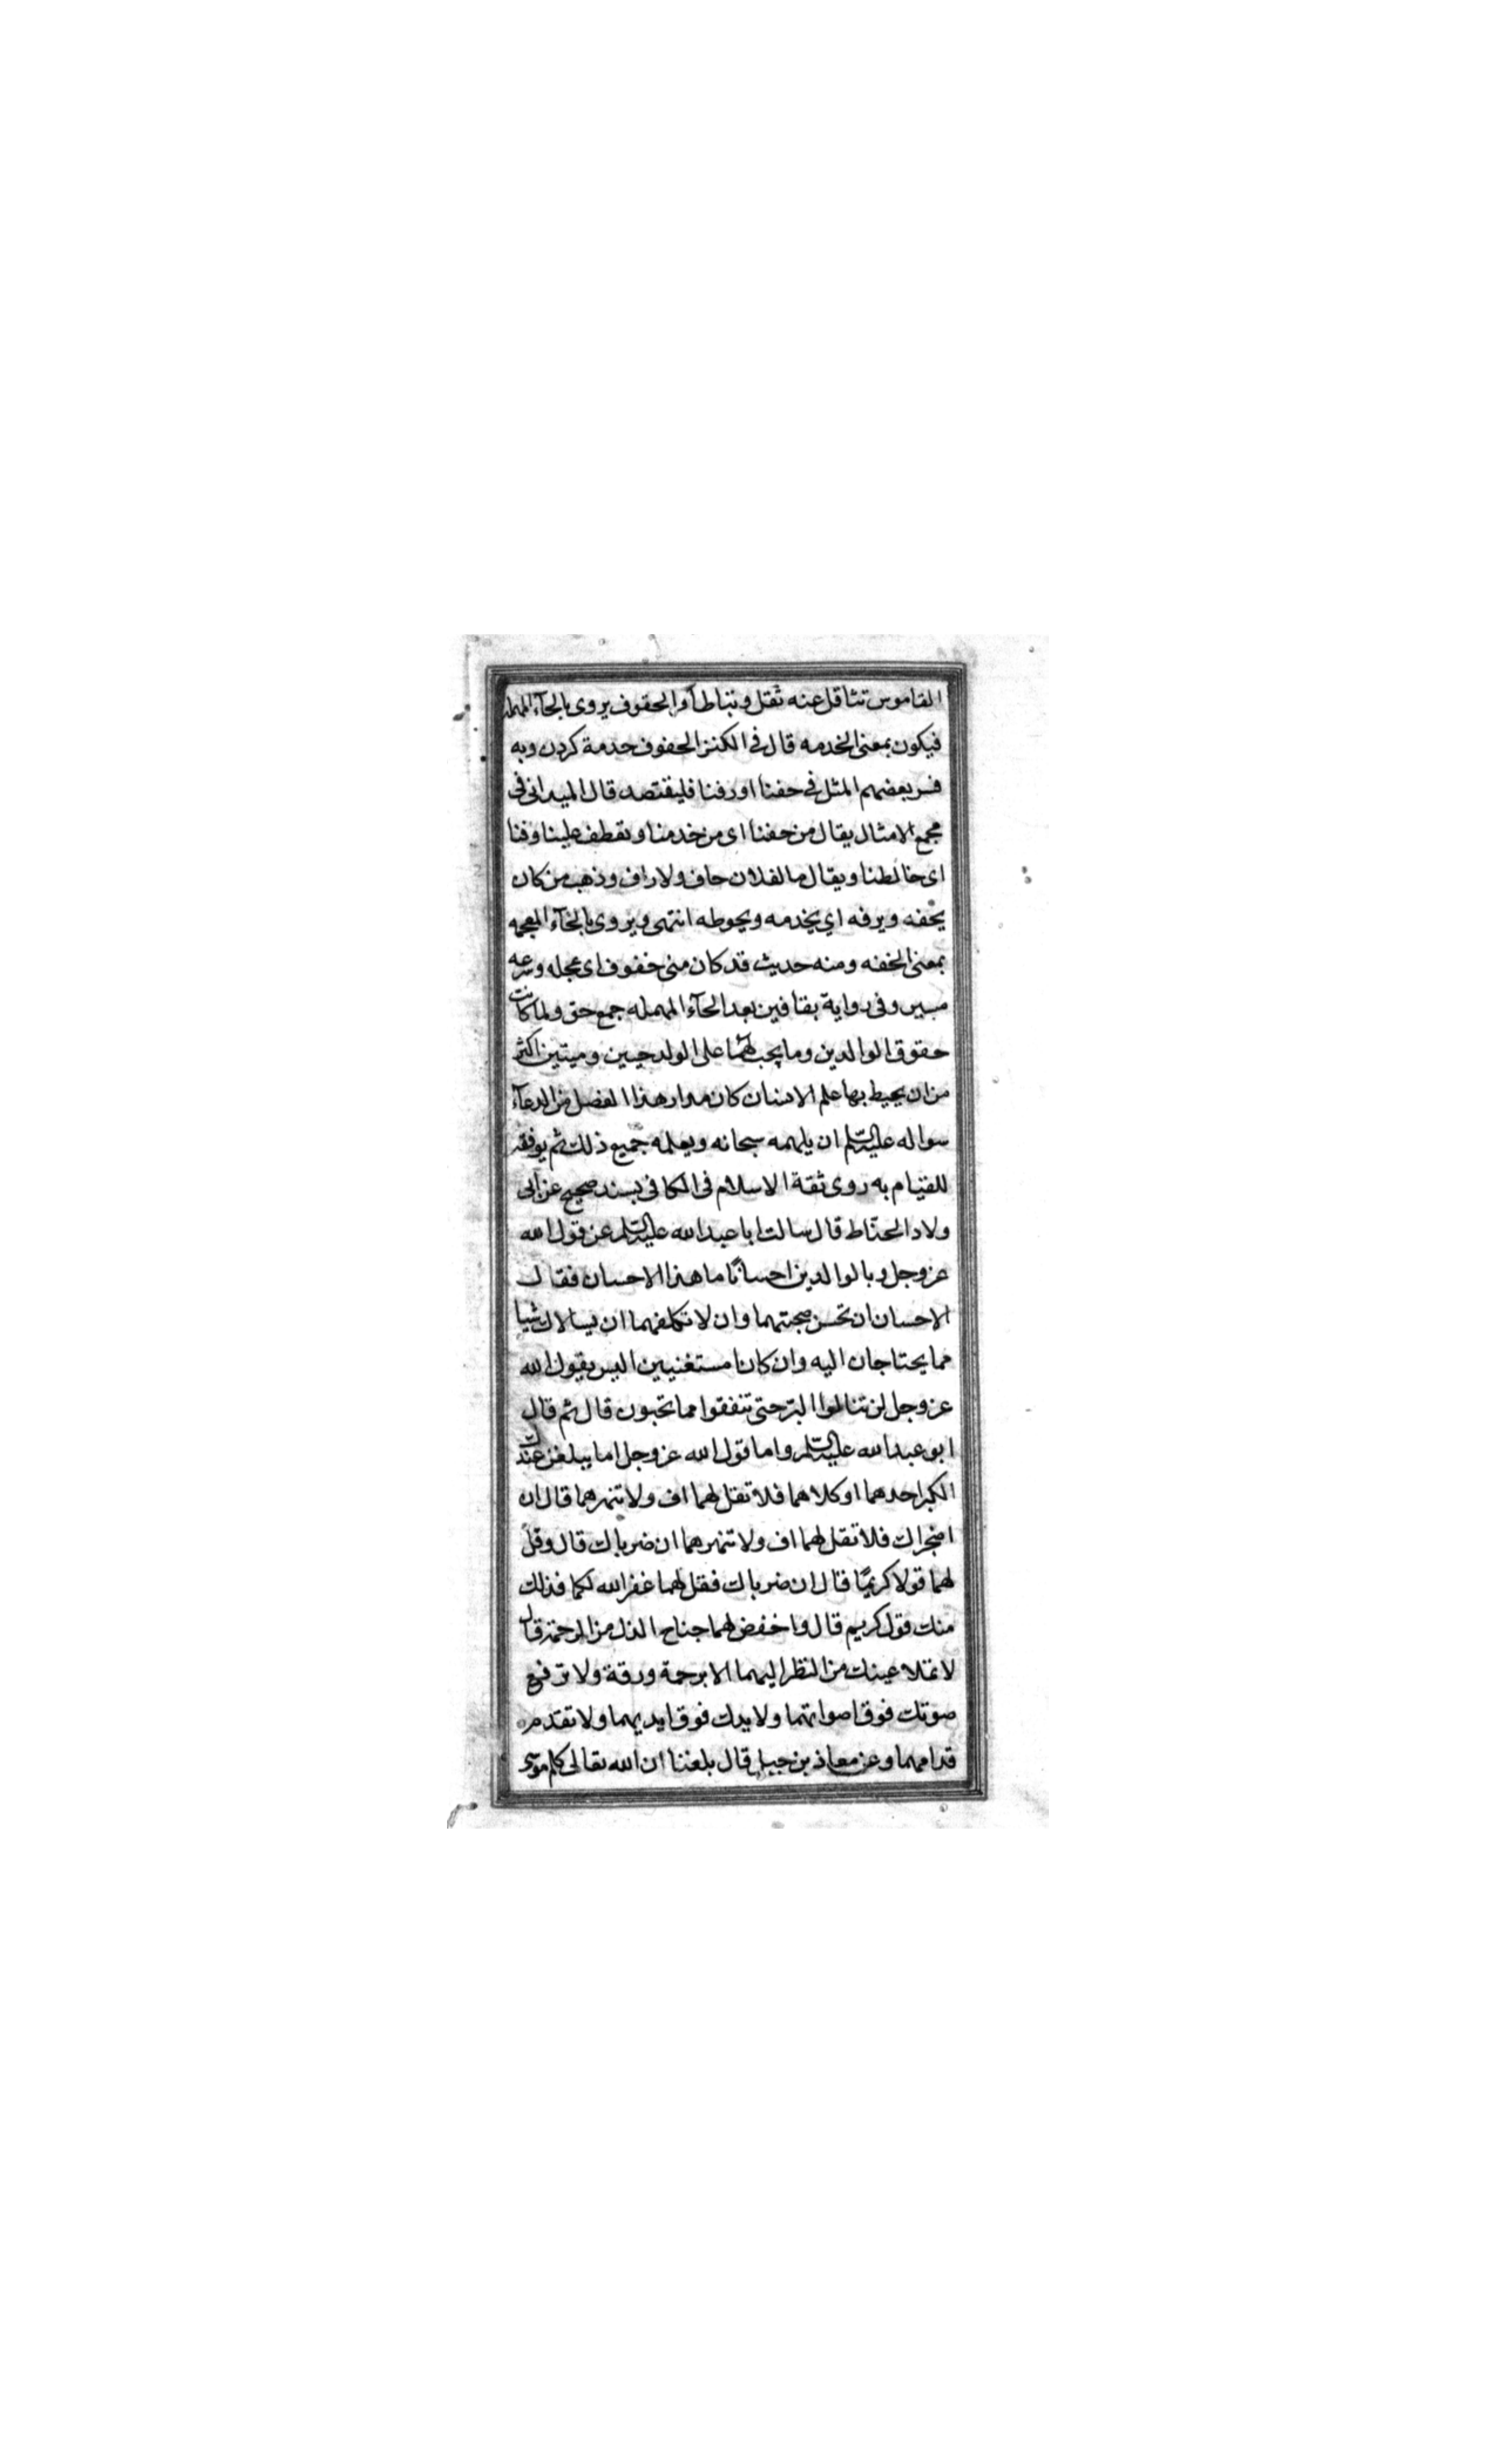 القاموس تثاقل عنه ثقل وتباطأ والحقوف يروى بالحآء المهملة
فيكون بمعنى الخدمه قال فى الكنز الحفوف خدمة كردن وبه
فسر بعضهم المثل فى حفنا اورفنا فليقتصد قال الميدانى فى
مجمع الامثال يقال من حفنا اى من خدمنا وتعطف علينا ورفنا
اى خالطنا ويقال مالفلان حاف ولاراف وذهب من كان
يحفه ويرفه اي يخدمه ويحوطه انتهى ويروى بالخآء المعجمه
بمعنى الخفه ومنه حديث قد كان منى خفوف اى عجله وسرعه
مسير وفى رواية بقافين بعد الحآء المهمله جمع حق ولما كانت
حقوق الوالدين وما يجب لهما على الولد حيين وميتين اكثر
من ان يحيط بها علم الانسان كان مدار هذا الفصل من الدعآء
سواله عليه السلم ان يلهمه سبحانه ويعلمه جميع ذلك ثم يوفقه
للقيام به روى ثقة الاسلام فى الكافى بسند صحيح عن ابى
ولاد الحناط قال سالت ابا عبدالله عليه السلم عن قول الله
عز وجل وبالوالدين احسانًا ما هذا الاحسان فقال
الاحسان ان تحسن صحبتهما وان لا تكلفهما ان يسالاك شيا
مما يحتاجان اليه وان كانا مستغنيين اليس يقول الله
عز وجل لن تنالوا البر حتى تنفقوا مما تحبون قال ثم قال
ابو عبدالله عليه السلم واما قول الله عز وجل اما يبلغن عندك
الكبر احدهما او كلاهما فلا تقل لهما اف ولا تنهرهما قال ان
اضجراك فلا تقل لهما اف ولا تنهرهما ان ضرباك قال وقل
لهما قولا كريمًا قال ان ضرباك فقل لهما غفر الله لكما فذلك
منك قول كريم قال واخفض لهما جناح الذل من الرحمة قال
لا تملا عينك من النظر اليهما الا برحمة ورقة ولا ترفع
صوتك فوق اصواتهما ولا يدك فوق ايديهما ولا تقدم
قدامهما وعن معاذ بن جبل قال بلغنا ان الله تعالى كلم موسى